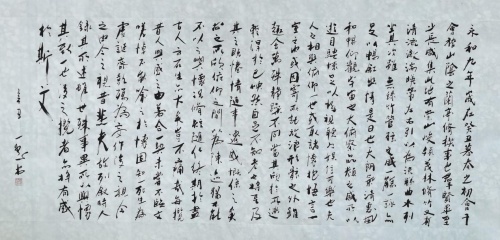 永和九年歲在癸丑暮春之初會于
會稽山陰之蘭亭修禊事也群賢畢至
少長咸集此地有崇山峻領茂林脩竹又有
清流激湍映帶左右引以為流觴曲水列
坐其次雖無絲竹管弦之盛一觴一詠亦
足以暢敘幽情是日也天朗氣清惠風
和暢仰觀宇宙之大俯察品類之盛所以
遊目騁懷足以極視聽之娛信可樂也夫
人之相與俯仰一世或取諸懷抱悟言一
室之內或因寄所託放浪形骸之外雖
趣舍萬殊靜躁不同當其欣於所遇
暫得於己快然自足不知老之將至及
其所之既惓情隨事遷感慨係之矣
向之所欣俛仰之間以為陳迹猶不能
不以之興懷況脩短隨化終期於盡
古人云死生亦大矣豈不痛哉每攬
昔人興感之由若合一契未嘗不臨文
嗟悼不能喻之於懷固知一死生為
虛誕齊彭殤為妄作後之視今
亦由今之視昔悲夫故列敘時人
錄其所述雖世殊事異所以興懷
其致一也後之攬者亦將有感
於斯文